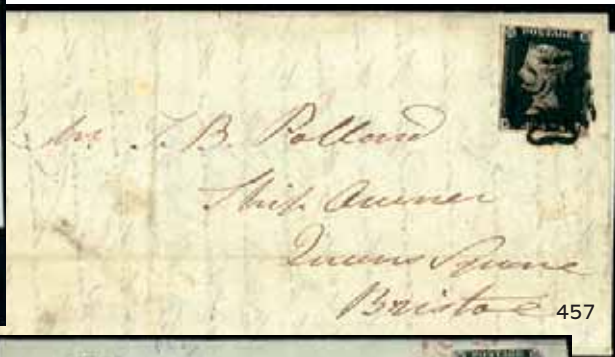 POSTAGE
Mr. T. B. Pollard
Ship Owner
Queens Square
Bristol
457